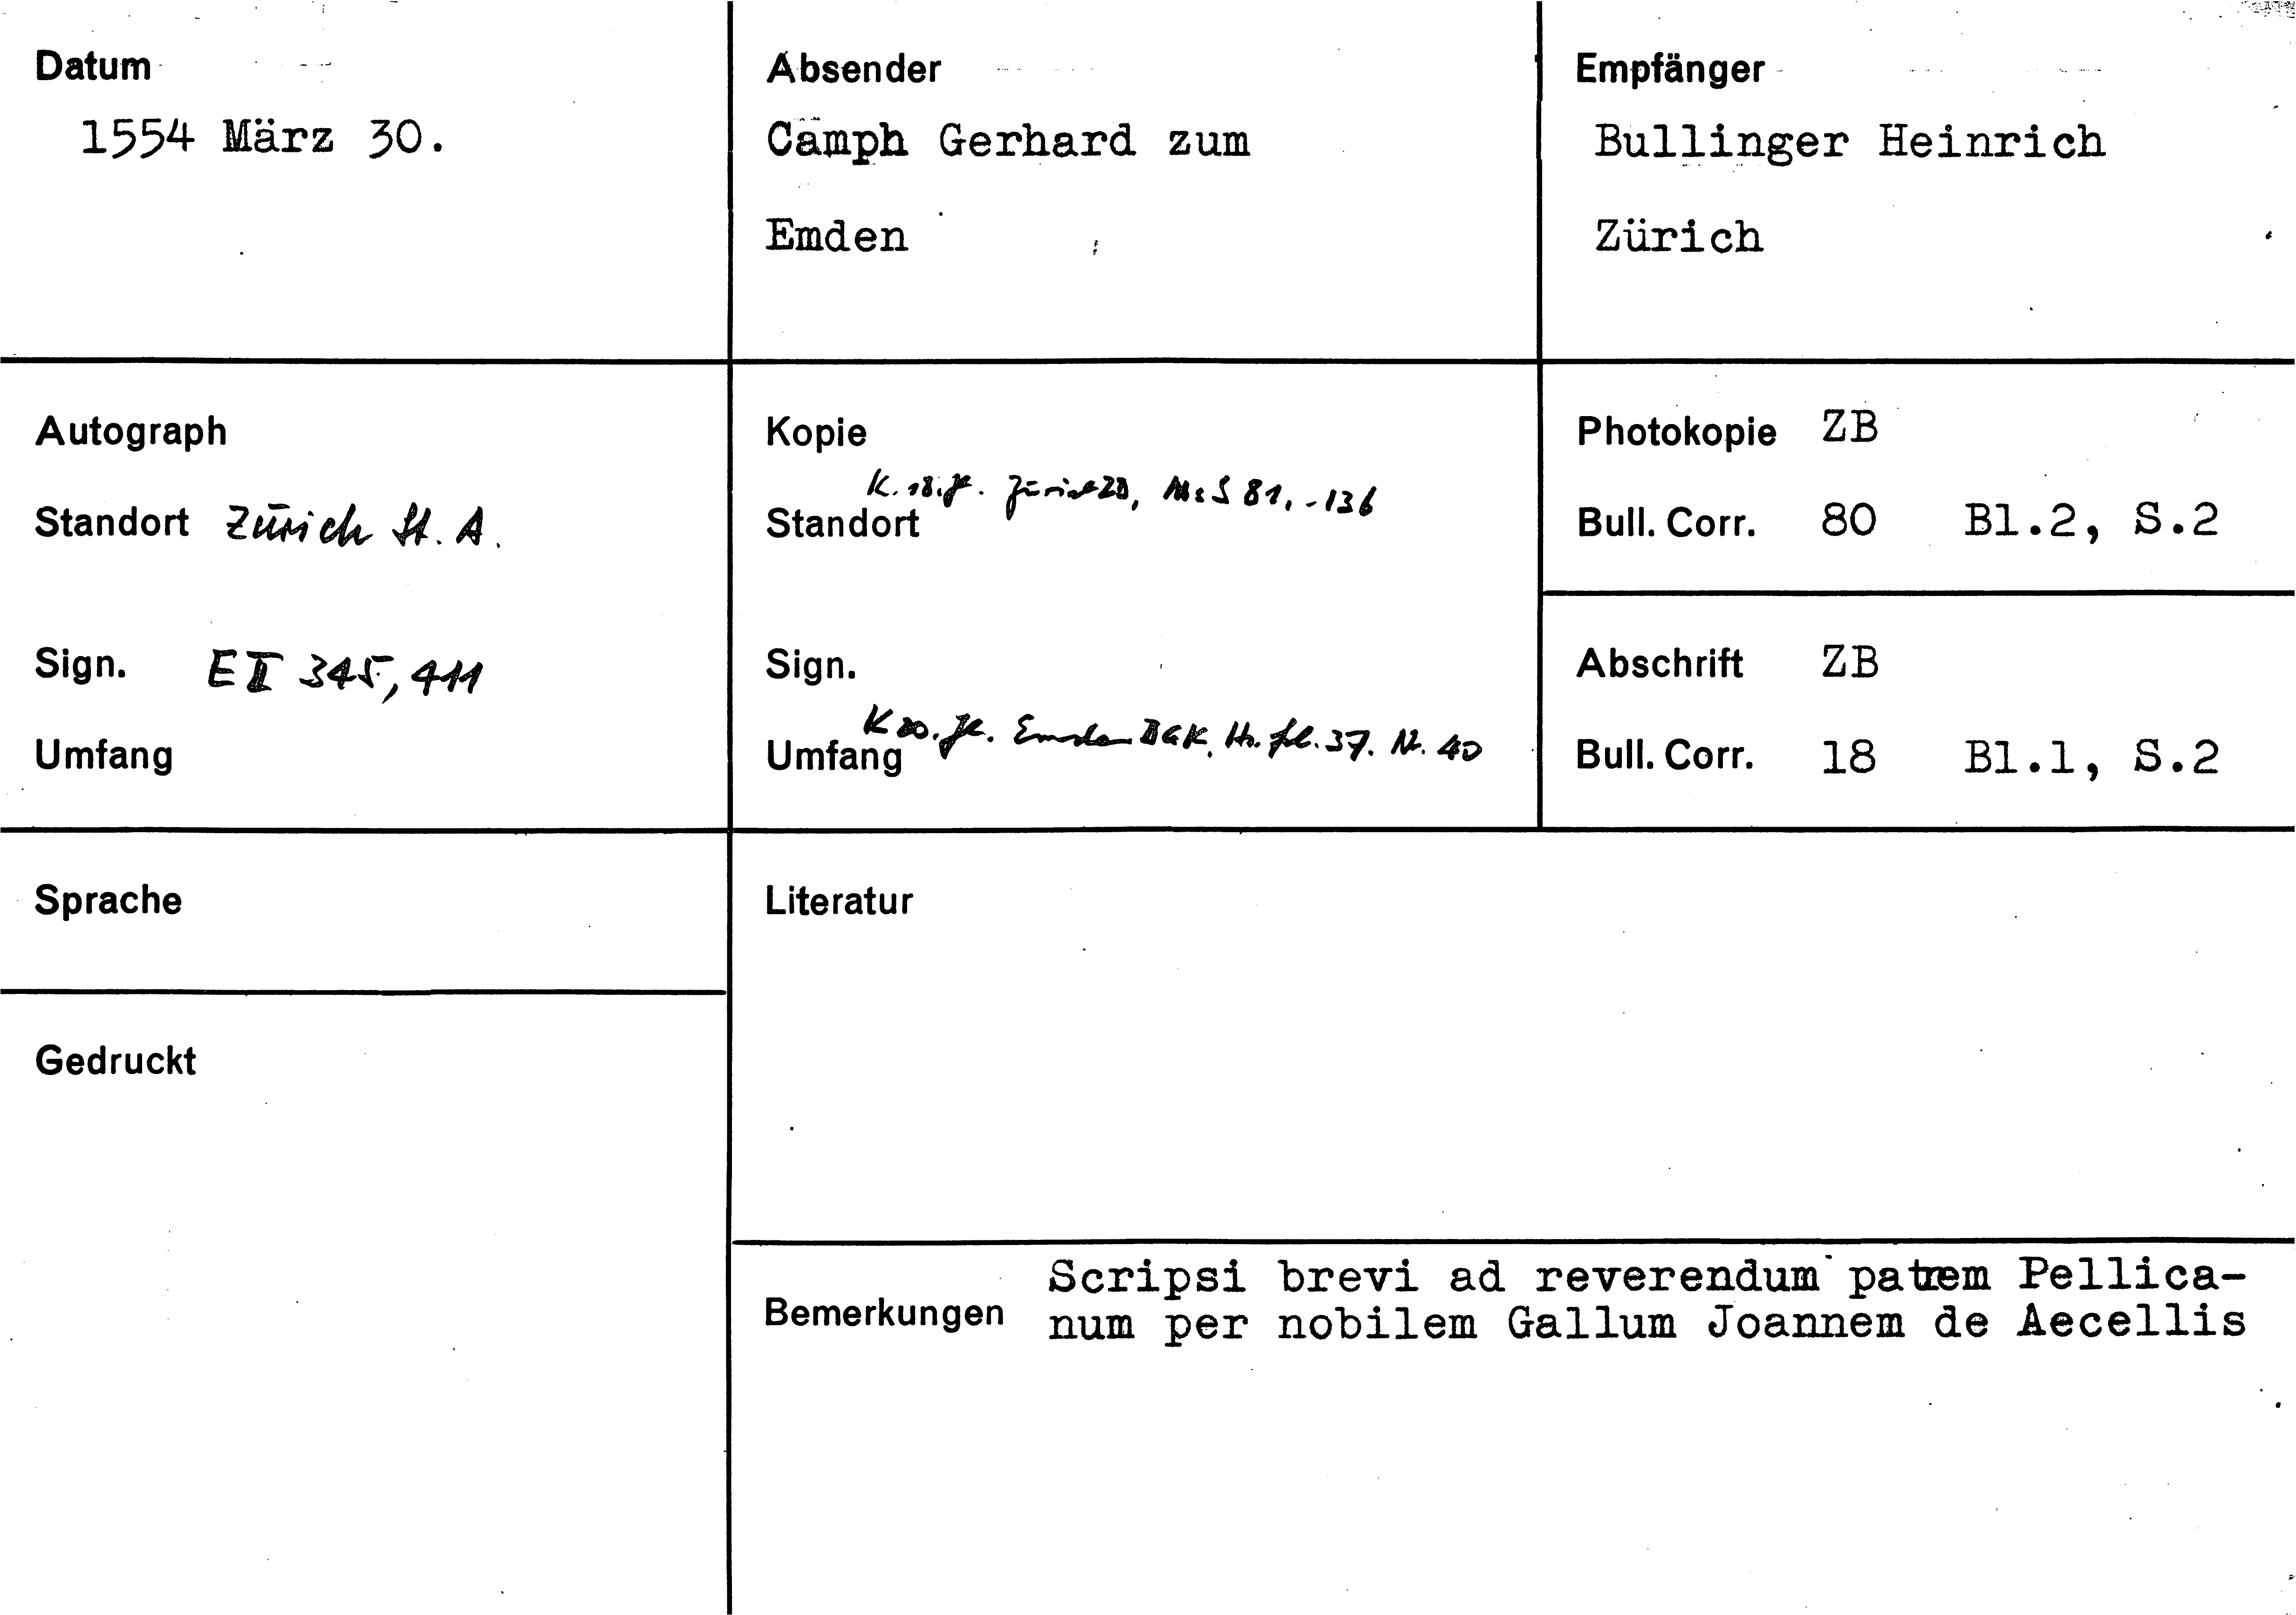 Datum
1554 März 30.
Absender
Camph Gerhard zum
Emden
Empfänger
Bullinger Heinrich
Zürich
Autograph
Standort Zürich St. A.
Sign. E II 345, 411
Umfang
Kopie
K. 18. Jh. Zürich ZB, Ms S 81, -136
Standort
Sign.
K 20. Jh. Emden BGK, Hs. fol. 37. Nr. 40
Umfang
Photokopie ZB
Bull. Corr. 80 Bl.2, S.2
Abschrift ZB
Bull. Corr. 18 Bl.1, S.2
Sprache
Gedruckt
Literatur
Bemerkungen
Scripsi brevi ad reverendum patrem Pellica-
num per nobilem Gallum Joannem de Aecellis